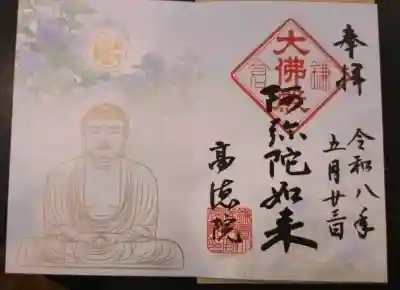 奉拝
令和八年
五月廿三日
大佛殿
阿弥陀如来
高徳院